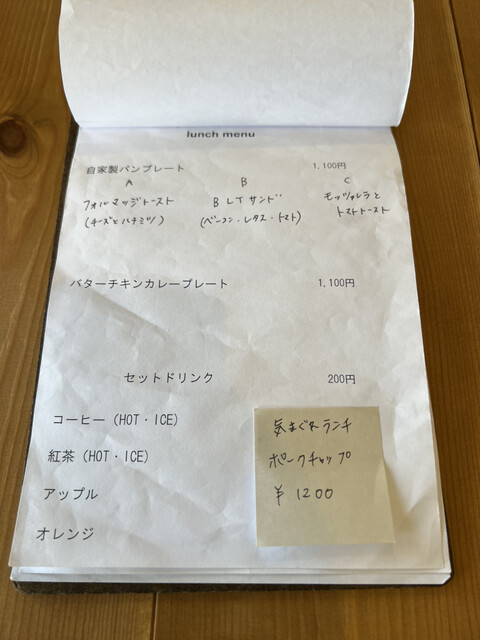 lunch menu
自家製パンプレート 1,100円
A B C
フォルマッジトースト BLTサンド モッツァレラと
(チーズとハチミツ) (ベーコン・レタス・トマト) トマトトースト
バターチキンカレープレート 1,100円
セットドリンク 200円
コーヒー (HOT・ICE)
紅茶 (HOT・ICE)
アップル
オレンジ
気まぐれランチ
ポークチャップ
¥1200